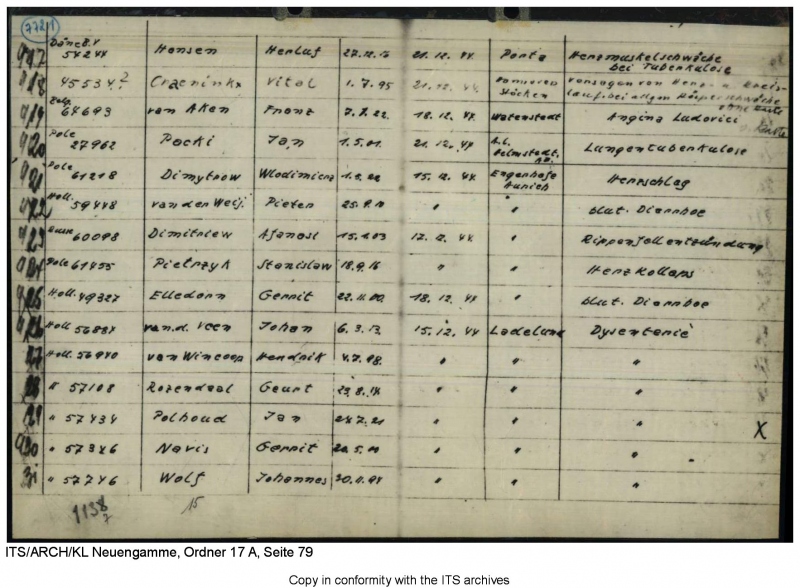 772/1
917 Däne B.V 54244 Hansen Herluf 27.12.16 21.12.44 Porta Herzmuskelschwäche
bei Tuberkulose
918 45534 Craeninkx Vital 1.7.95 21.12.44 Hannover Stöcken Versagen von Herz- u. Kreis-
lauf bei allgem. Körperschwäche
919 64693 van Aken Franz 7.7.22 18.12.44 Watenstedt Angina Ludovici
920 Pole 27962 Packi Jan 1.5.01 21.12.44 A.L. Helmstedt Lungentuberkulose
921 Pole 61218 Dimytrow Wlodimierz 15.12.44 Engerhafe Aurich Herzschlag
922 Holl. 59448 van der Weij. Pieter 25.9.10 " " blut. Diarrhoe
923 60098 Dimitriew Afanasi 15.1.03 17.12.44 " Rippenfellentzündung
924 Pole 61455 Pietrzyk Stanislaw 18.9.16 " " Herzkollaps
925 Holl. 49327 Elledorn Gerrit 22.11.00 18.12.44 " blut. Diarrhoe
926 Holl. 56884 van.d. Veen Johan 6.3.13 15.12.44 Ladelund Dysenterie
27 Holl. 56940 van Wincoop Hendrik 4.7.98 " " "
28 " 57108 Rozendaal Geurt 23.8.14 " " "
29 " 57434 Polhoud Jan 28.7.21 " " " X
930 " 57346 Navis Gerrit " " "
31 " 57746 Wolf Johannes 30.11.94 " " "
1138 15
7
ITS/ARCH/KL Neuengamme, Ordner 17 A, Seite 79
Copy in conformity with the ITS archives